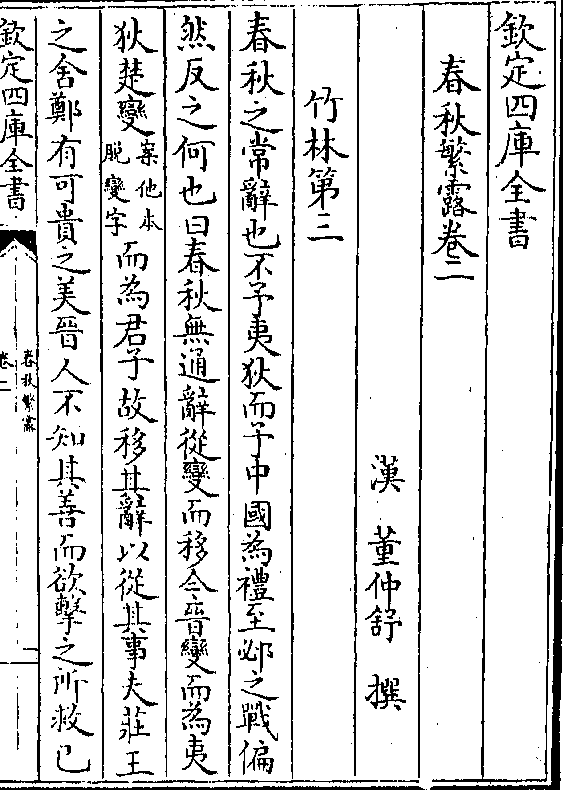 欽定四庫全書
春秋繁露卷二
漢 董仲舒 撰
竹林第三
春秋之常辭也不予夷狄而予中國為禮至邲之戰偏
然反之何也曰春秋無通辭從變而移今晉變而為夷
狄楚變案他本脫變字而為君子故移其辭以從其事夫莊王
之舍鄭有可貴之美晉人不知其善而欲擊之所救已
欽定四庫全書
春秋繁露
卷二